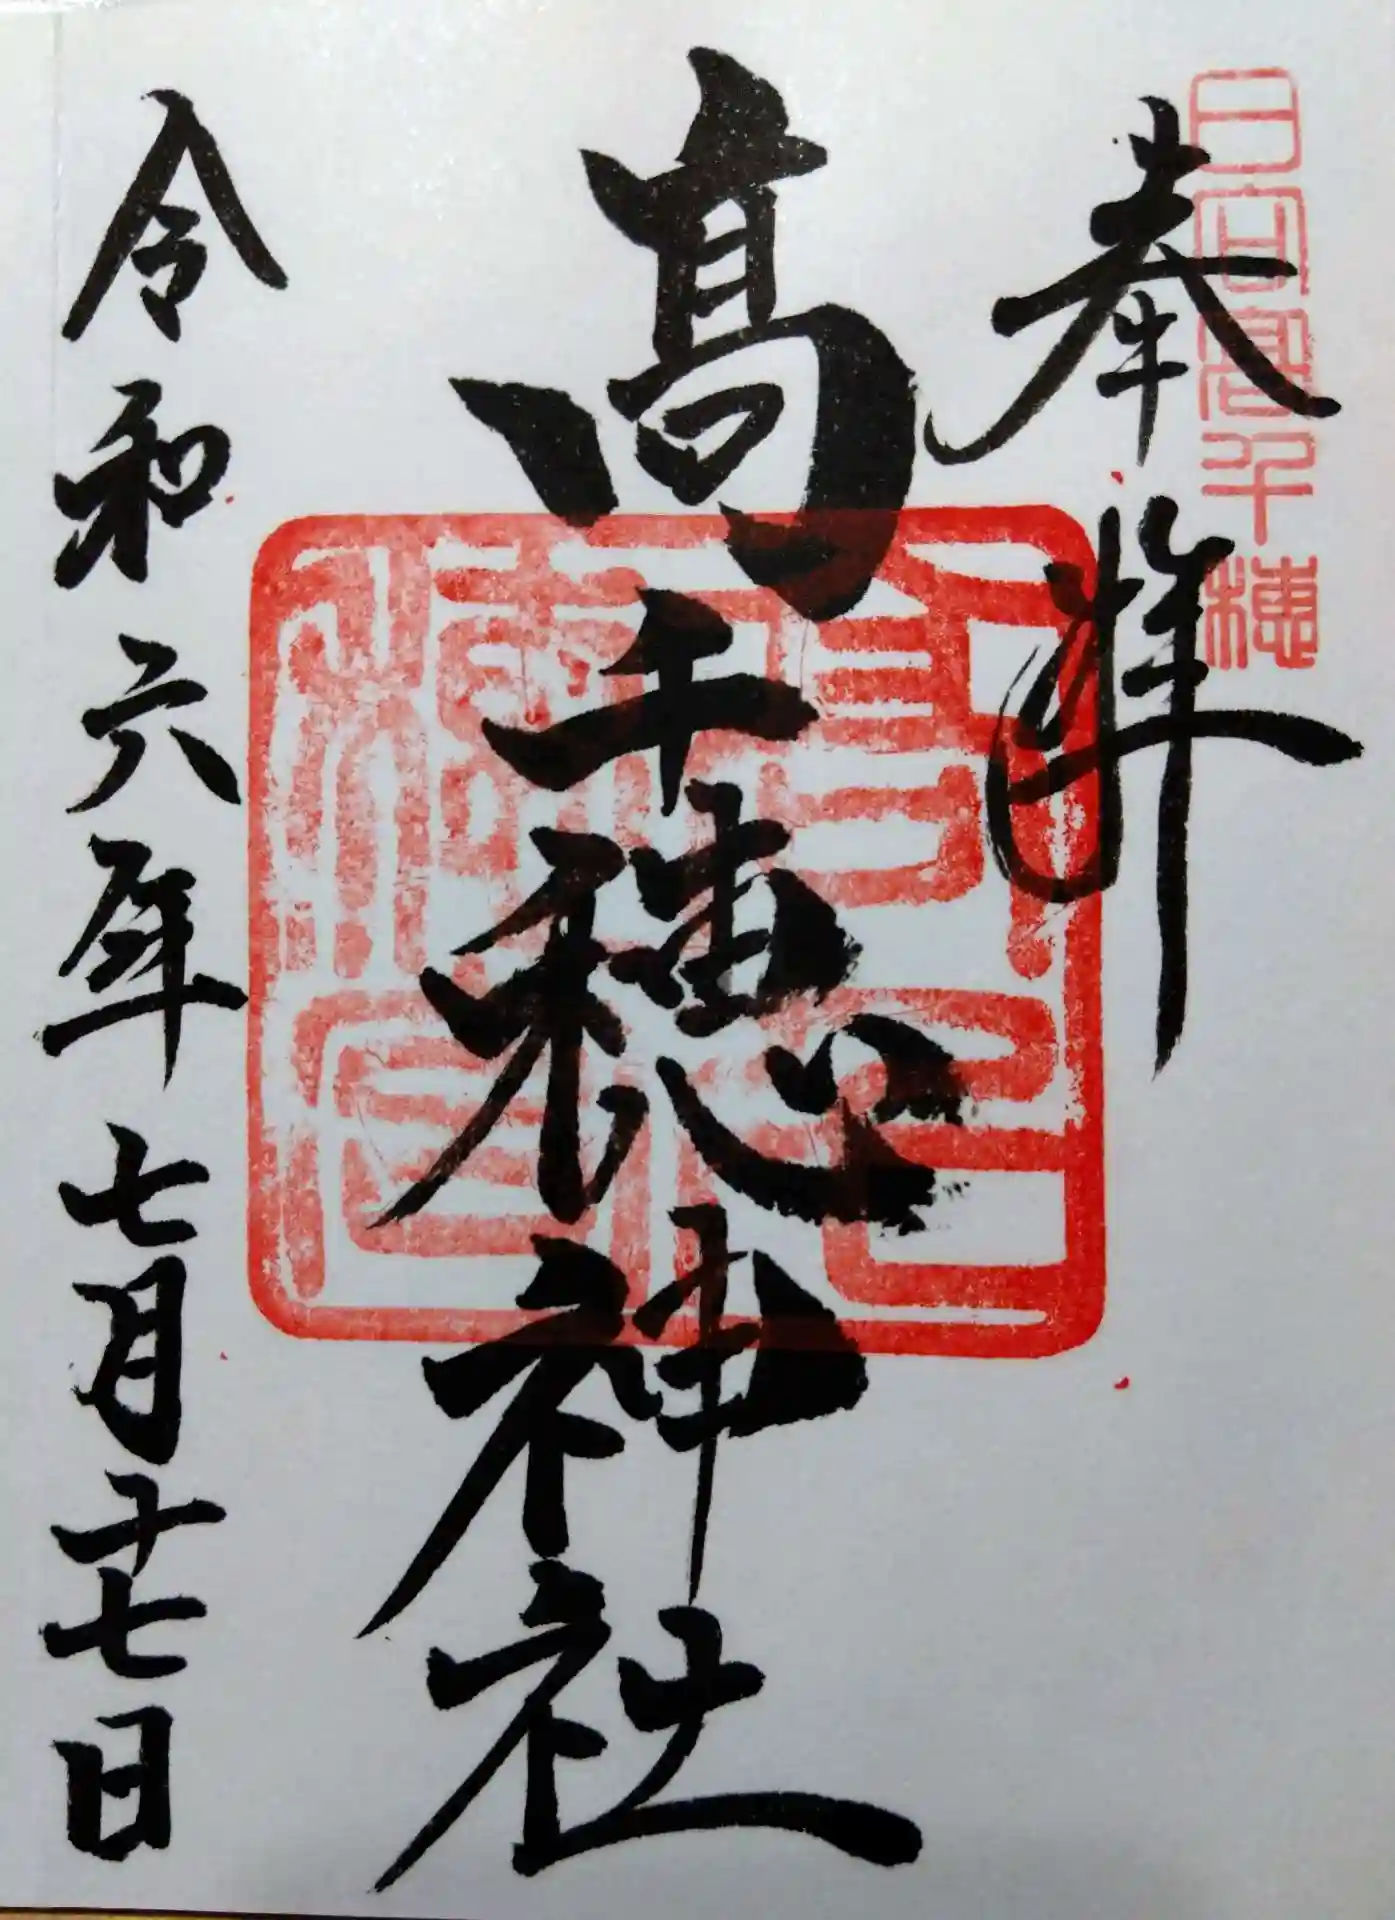 日向高千穂
奉拝
高千穂神社
令和六年七月十七日